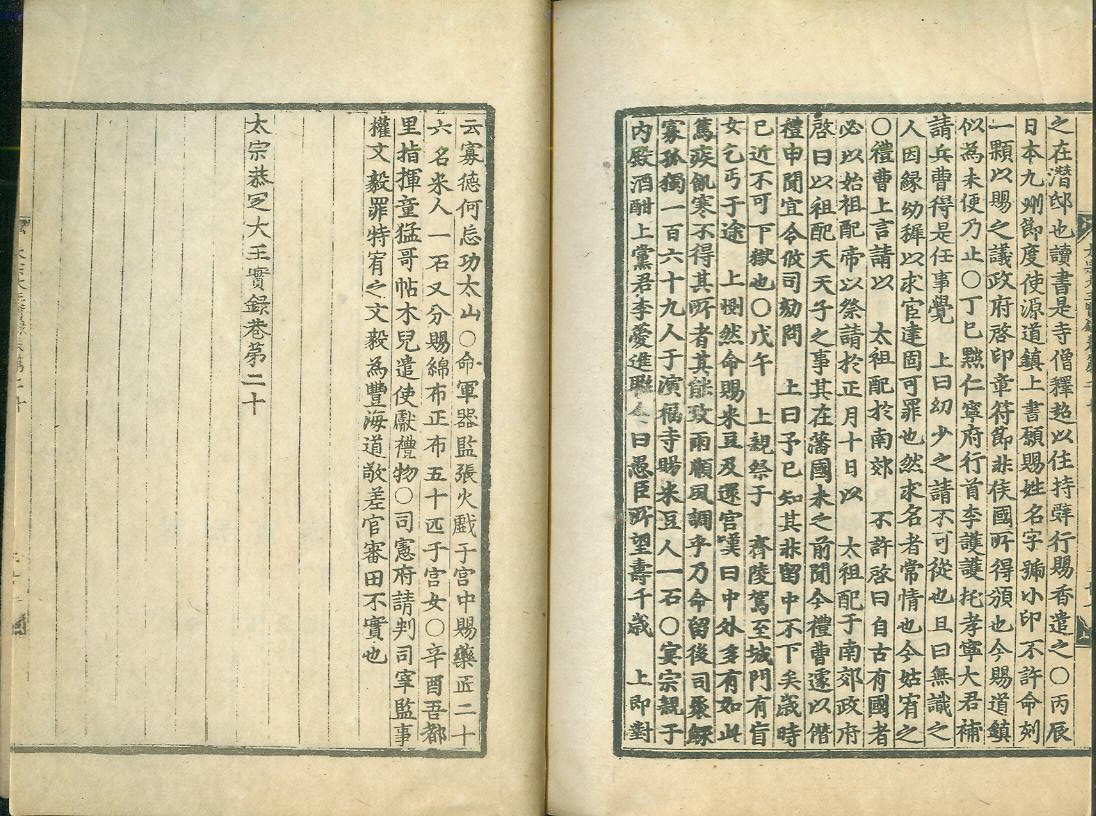 之在潛邸也讀書是寺僧釋超以住持辭行賜香遣之○丙辰
日本九州節度使源道鎮上書願賜姓名字號小印不許命刻
一顆以賜之議政府啓印章符節非侯國所得頒也今賜道鎮
似為未便乃止○丁巳黥仁寧府行首李護護托孝寧大君補
請兵曹得是任事覺　上曰幼少之請不可從也且曰無識之
人因緣幼穉以求官達固可罪也然求名者常情也今姑宥之
○禮曹上言請以　太祖配於南郊　不許啓曰自古有國者
必以始祖配帝以祭請於正月十日以　太祖配于南郊政府
啓曰以祖配天天子之事其在藩國未之前聞今禮曹遽以僭
禮申聞宜令攸司劾問　上曰予已知其非留中不下矣歲時
已近不可下獄也○戊午　上親祭于　齊陵駕至城門有盲
女乞丐于途　上惻然命賜米豆及還宮嘆曰中外多有如此
篤疾飢寒不得其所者其能致雨順風調乎乃命留後司聚鰥
寡孤獨一百六十九人于演福寺賜米豆人一石○宴宗親于
內殿酒酣上黨君李愛進聯句曰愚臣所望壽千歲　上即對
云寡德何忘功太山○命軍器監張火戲于宮中賜藥匠二十
六名米人一石又分賜綿布正布五十匹于宮女○辛酉吾都
里指揮童猛哥帖木兒遣使獻禮物○司憲府請判司宰監事
權文毅罪特宥之文毅為豐海道敬差官審田不實也
太宗恭定大王實錄卷第二十